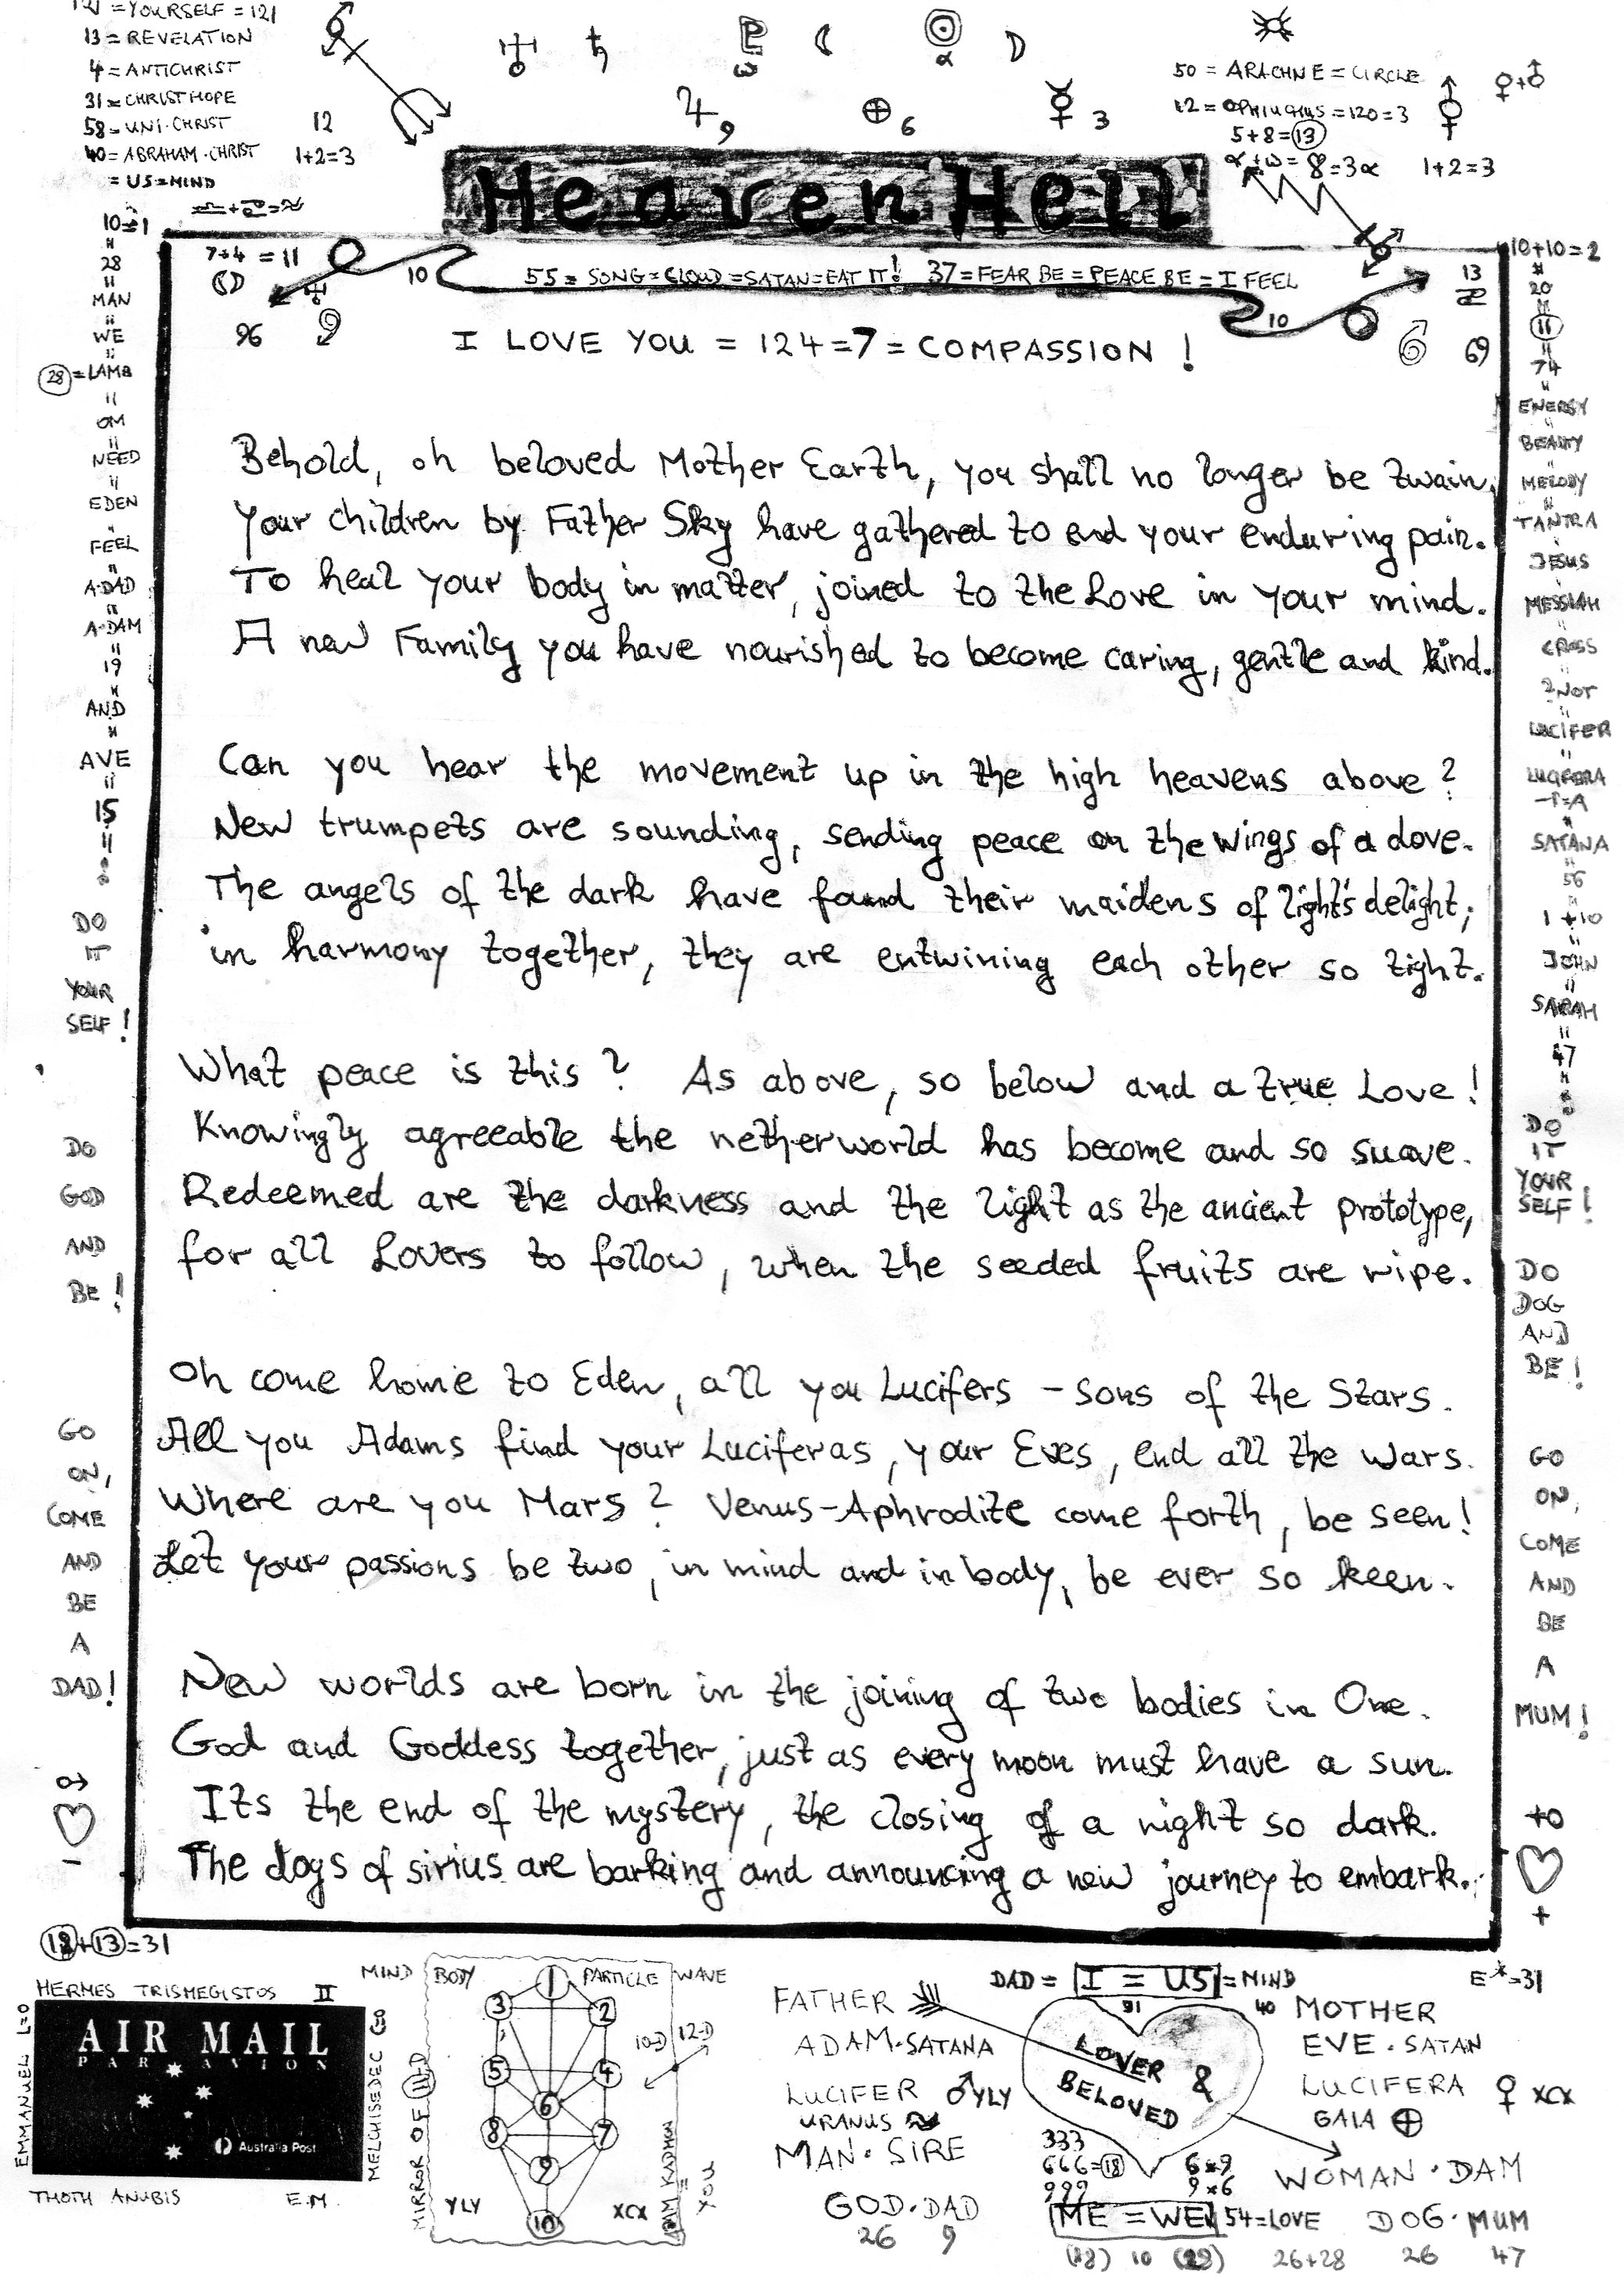 121 = YOURSELF = 121
13 = REVELATION
4 = ANTICHRIST
31 = CHRIST HOPE
58 = UNI·CHRIST
40 = ABRAHAM·CHRIST
= US = MIND
12
1+2=3
ω
α
9
6
3
50 = ARACHNE = CIRCLE
12 = OPHIUCHUS = 120 = 3
5+8=13
α+ω= 8=3α
1+2=3
♀+♂
HeavenHell
7+4 = 11
10
55 = SONG = CLOUD = SATAN = EAT IT! 37 = FEAR BE = PEACE BE = I FEEL
10
13
96
69
I LOVE YOU = 124 = 7 = COMPASSION !
Behold, oh beloved Mother Earth, you shall no longer be twain,
Your children by Father Sky have gathered to end your enduring pain.
To heal your body in matter, joined to the Love in your mind.
A new Family you have nourished to become caring, gentle and kind.
Can you hear the movement up in the high heavens above?
New trumpets are sounding, sending peace on the wings of a dove.
The angels of the dark have found their maidens of light's delight;
in harmony together, they are entwining each other so tight.
What peace is this? As above, so below and a true Love!
Knowingly agreeable the netherworld has become and so suave.
Redeemed are the darkness and the light as the ancient prototype,
for all Lovers to follow, when the seeded fruits are ripe.
Oh come home to Eden, all you Lucifers - sons of the Stars.
All you Adams find your Luciferas, your Eves, end all the Wars.
Where are you Mars? Venus-Aphrodite come forth, be seen!
Let your passions be two, in mind and in body, be ever so keen.
New worlds are born in the joining of two bodies in One.
God and Goddess together, just as every moon must have a sun.
Its the end of the mystery, the closing of a night so dark.
The dogs of sirius are barking and announcing a new journey to embark.
10=1
"
28
"
MAN
"
WE
"
28 = LAMB
"
OM
"
NEED
"
EDEN
"
FEEL
"
A·DAD
"
A·DAM
"
19
"
AND
"
AVE
"
15
"
DO
IT
YOUR
SELF!
DO
GOD
AND
BE!
GO
ON,
COME
AND
BE
A
DAD!
-
10+10=2
"
20
"
11
"
74
"
ENERGY
BEAUTY
MELODY
TANTRA
JESUS
MESSIAH
CROSS
LUCIFER
"
LUCIFERA
SATANA
56
1+10
"
JOHN
"
SARAH
"
47
DO
IT
YOUR
SELF!
DO
DOG
AND
BE!
GO
ON,
COME
AND
BE
A
MUM!
+
18+13=31
HERMES TRISMEGISTOS II
EMMANUEL
AIR MAIL
PAR AVION
Australia Post
MELCHISEDEC
THOTH ANUBIS E.M.
MIND BODY PARTICLE WAVE
MIRROR OF
1
3 2
5 4
6
8 7
9
10
10-D 12-D
YLY XCX
ADAM KADMON
=
YOU
FATHER
ADAM·SATANA
LUCIFER ♂YLY
URANUS
MAN·SIRE
GOD·DAD
26 9
DAD = I = US = MIND
91 40
LOVER &
BELOVED
333
666=18
999
6×9
9×6
ME = WE 54=LOVE
(18) 10 (28) 26+28
E*=31
MOTHER
EVE·SATAN
LUCIFERA ♀ XCX
GAIA ⊕
WOMAN·DAM
DOG·MUM
26 47